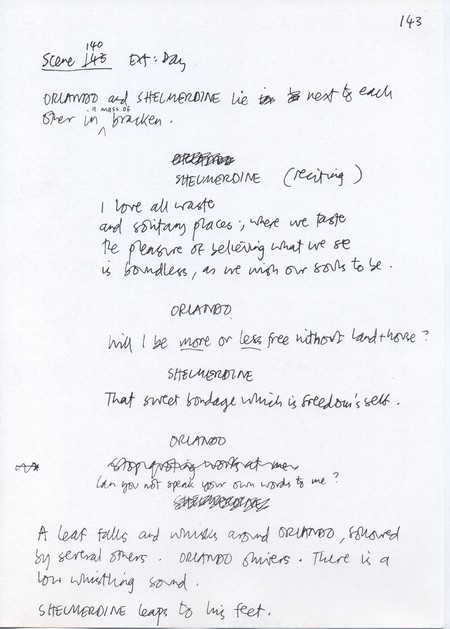 143
140
Scene 145 Ext: Day
ORLANDO and SHELMERDINE lie next to each
other in a mass of bracken.
SHELMERDINE (reciting)
I love all waste
and solitary places; where we taste
the pleasure of believing what we see
is boundless, as we wish our souls to be.
ORLANDO
Will I be more or less free without land + house?
SHELMERDINE
That sweet bondage which is freedom's self.
ORLANDO
Stop quoting words at me
Can you not speak your own words to me?
SHELMERDINE
A leaf falls and whirls around ORLANDO, followed
by several others. ORLANDO shivers. There is a
low whistling sound.
SHELMERDINE leaps to his feet.